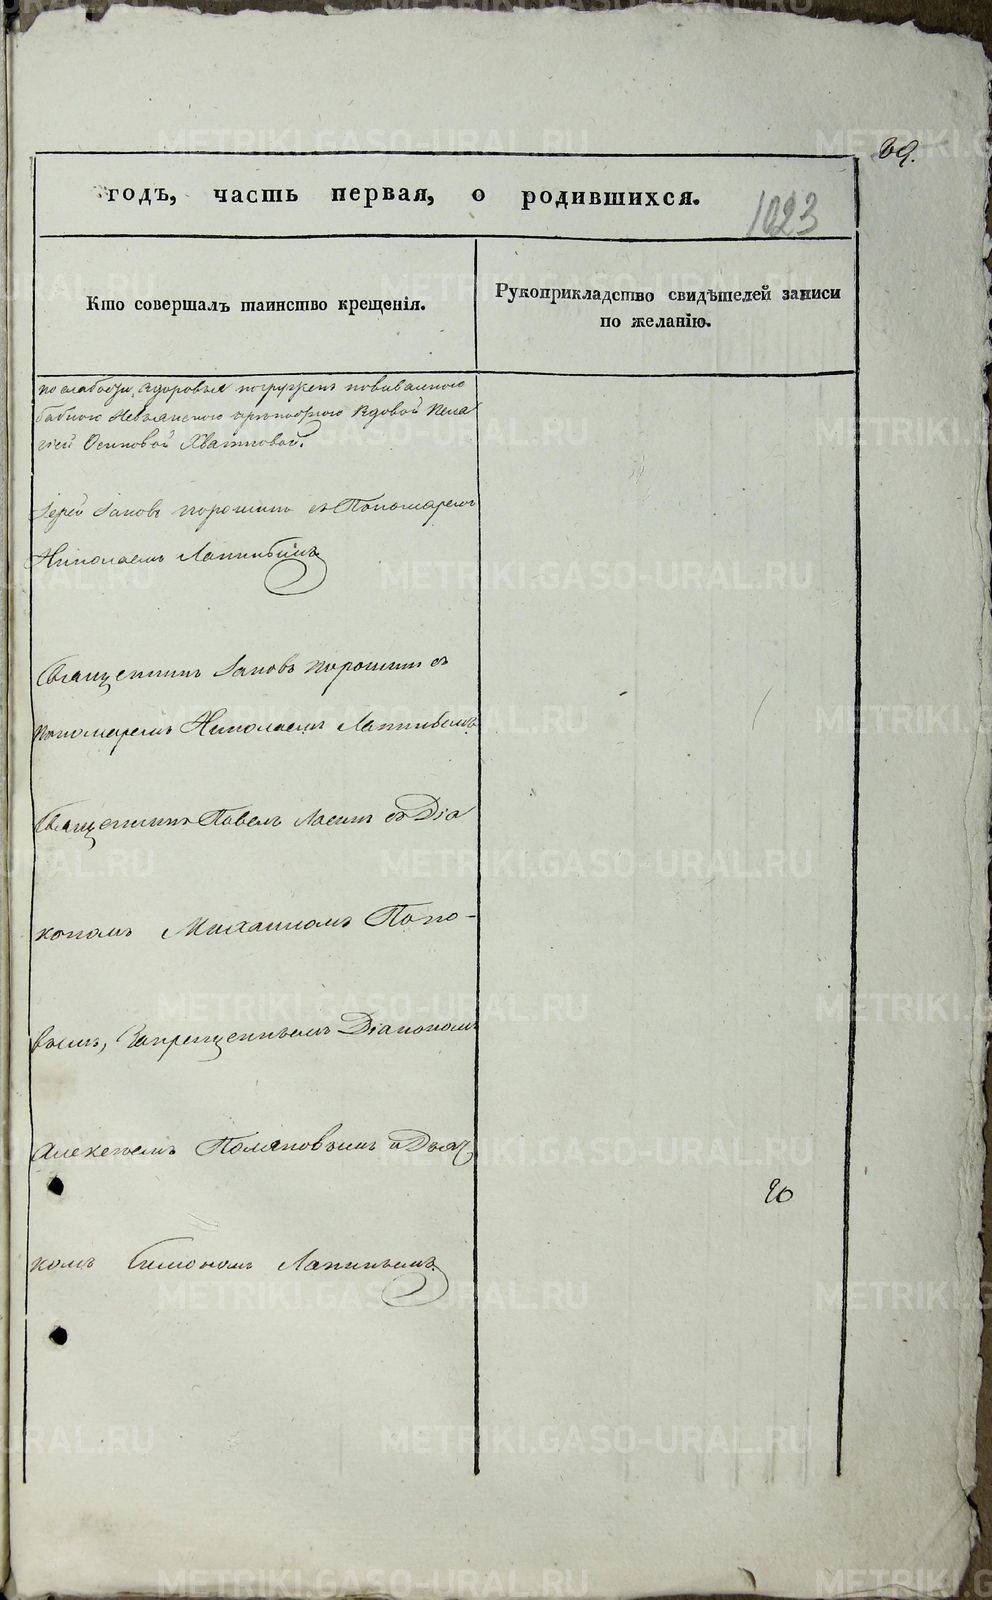 69.
годъ, часть первая, о родившихся.
1023
Кто совершалъ таинство крещенія.
Рукоприкладство свидѣтелей записи
по желанію.
по слабости здоровья погруженъ повивальною
бабкою Невьянскою вдовой Пела
гіей Осиповой Хватковой.
Іерей Іаковъ Порошинъ съ Пономаремъ
Николаемъ Лапинымъ
Священникъ Іаковъ Порошинъ съ
пономаремъ Николаемъ Лапинымъ.
Священникъ Павелъ съ Діа
кономъ Михаиломъ Попо-
вымъ, Запрещеннымъ Діакономъ
Алексѣемъ Поляковымъ и Дьяч
комъ Симономъ Лапинымъ.
20
METRIKI.GASO-URAL.RU